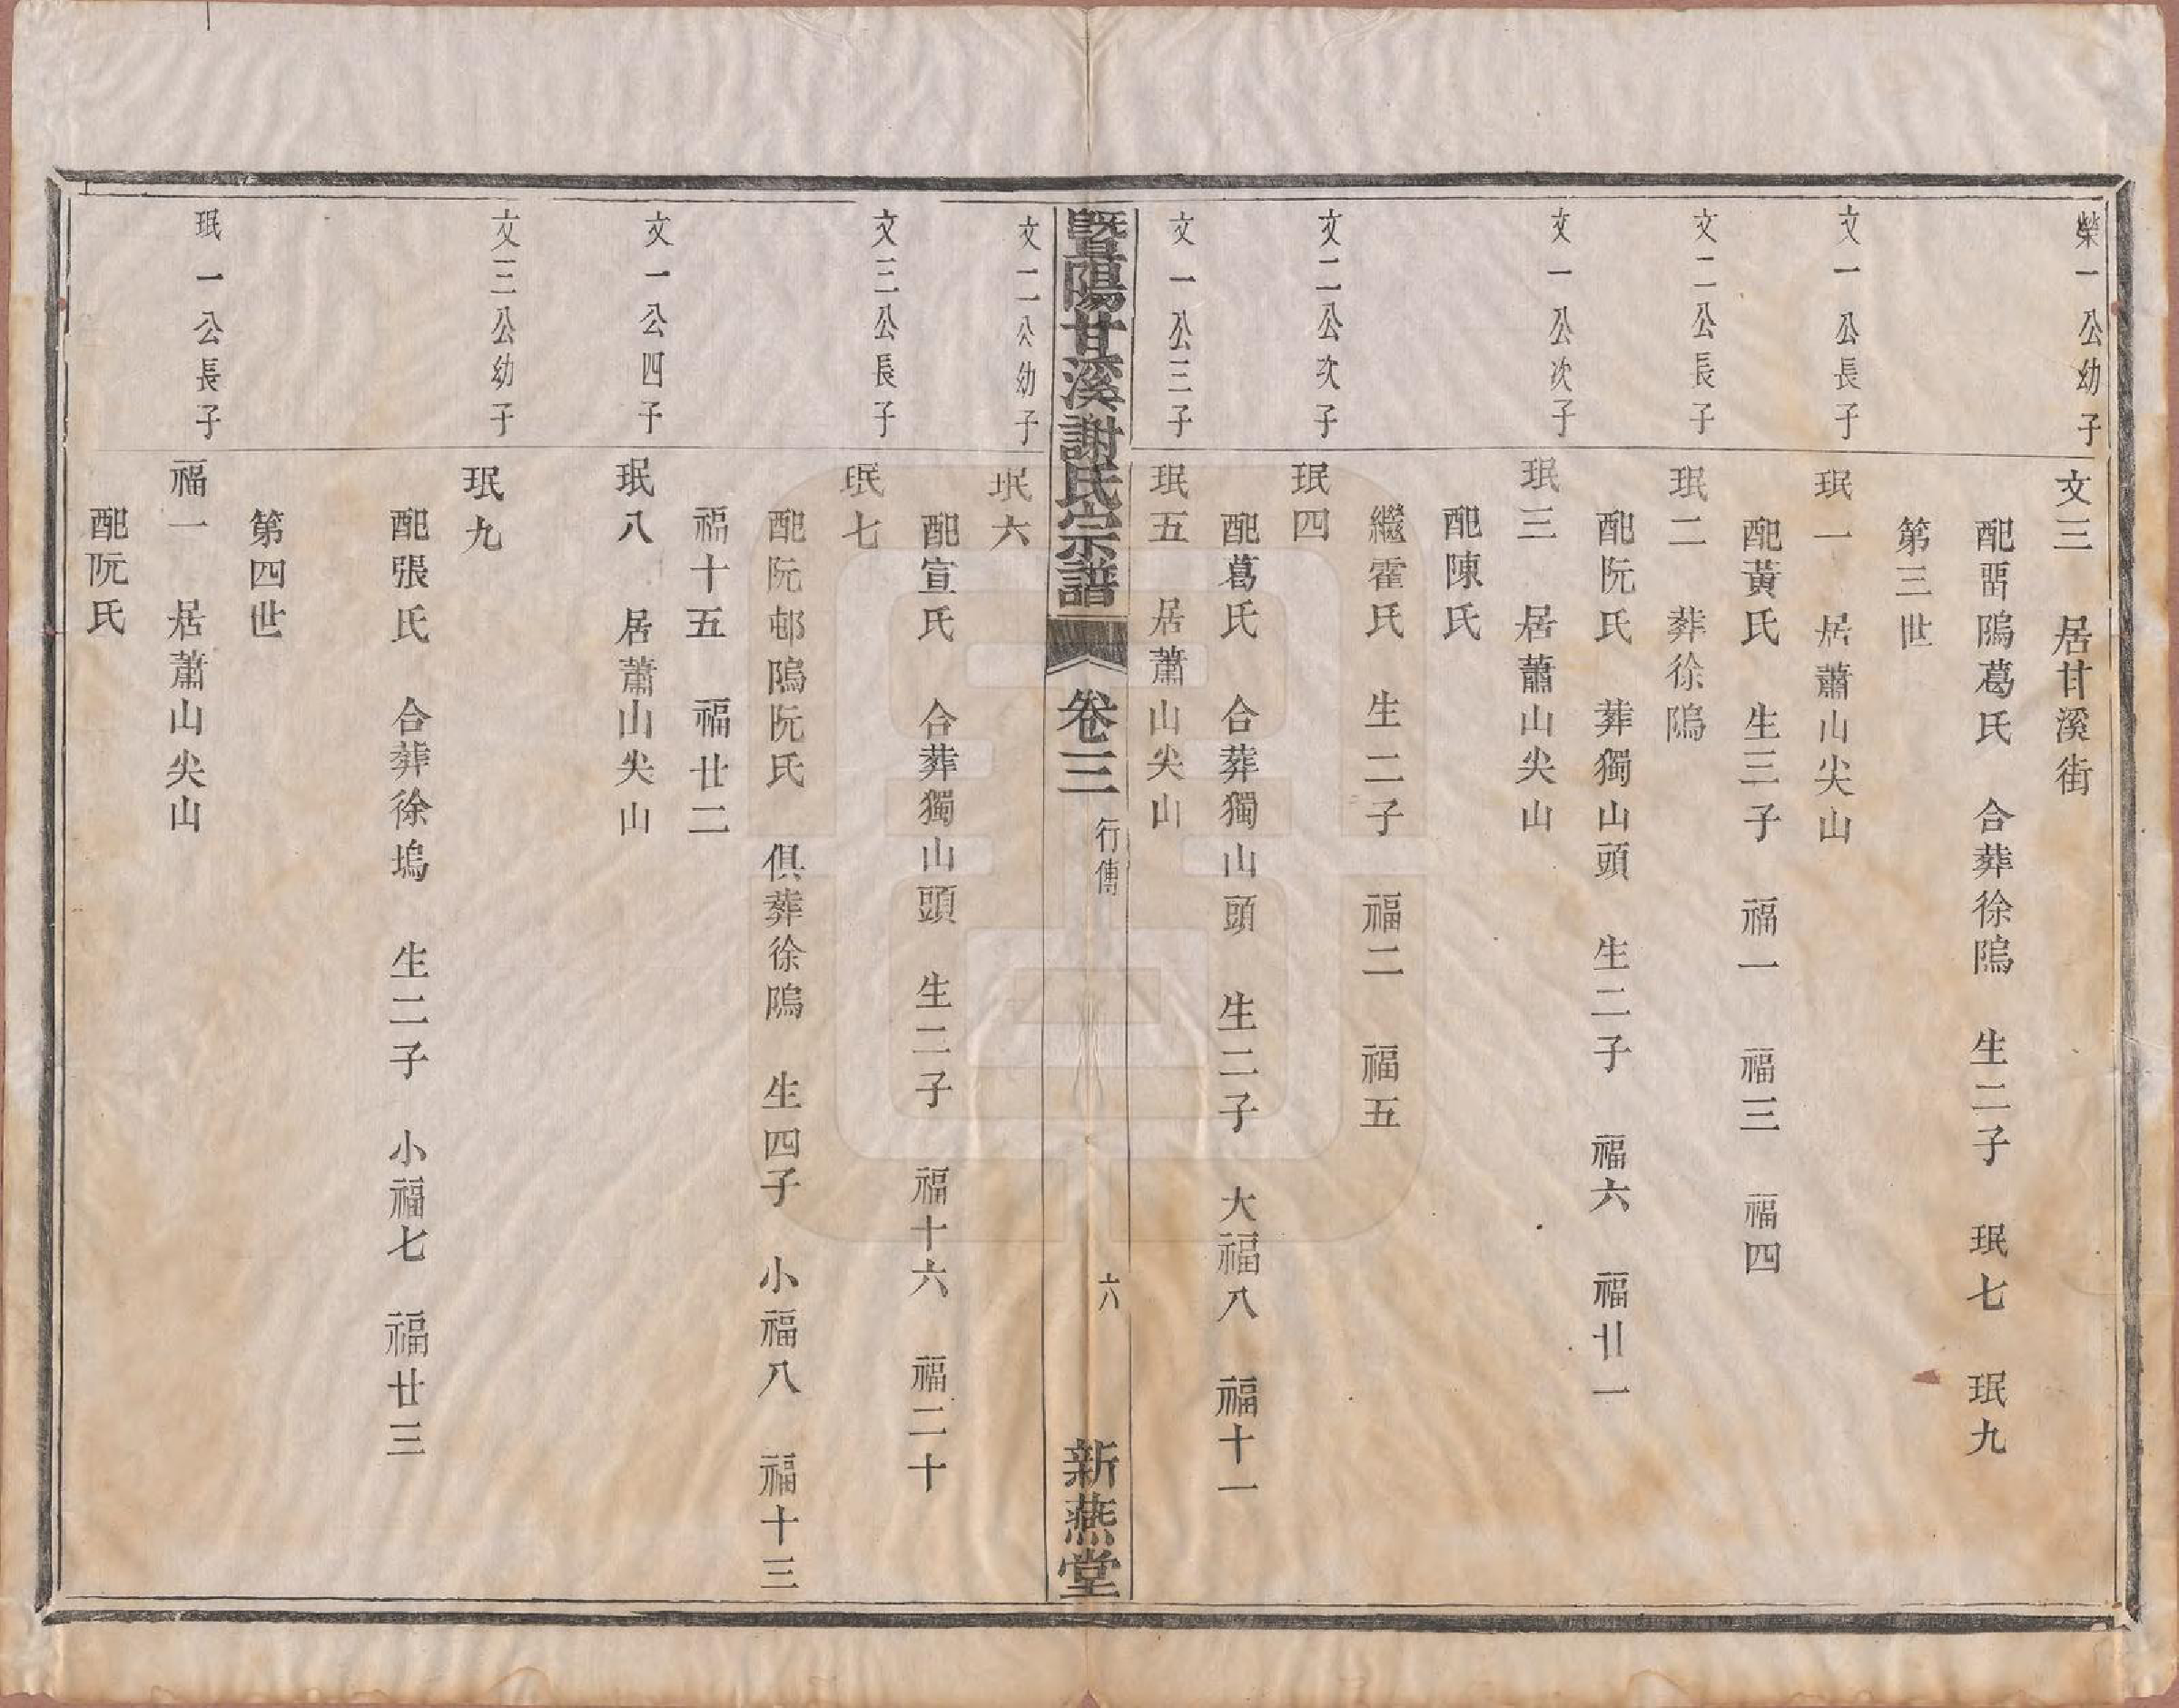 榮一公幼子
文三　居甘溪街
配畱隖葛氏　合葬徐隖　生二子　珉七　珉九
第三世
文一公長子
珉一　居蕭山尖山
配黃氏　生三子　福一　福三　福四
文二公長子
珉二　葬徐隖
配阮氏　葬獨山頭　生二子　福六　福廿一
文一公次子
珉三　居蕭山尖山
配陳氏
繼霍氏　生二子　福二　福五
文二公次子
珉四
配葛氏　合葬獨山頭　生二子　大福八　福十一
文一公三子
珉五　居蕭山尖山
暨陽甘溪謝氏宗譜　卷三　行傳　六　新燕堂
文二公幼子
珉六
配宣氏　合葬獨山頭　生二子　福十六　福二十
文三公長子
珉七
配阮邨隖阮氏　俱葬徐隖　生四子　小福八　福十三
福十五　福廿二
文一公四子
珉八　居蕭山尖山
文三公幼子
珉九
配張氏　合葬徐塢　生二子　小福七　福廿三
第四世
珉一公長子
福一　居蕭山尖山
配阮氏